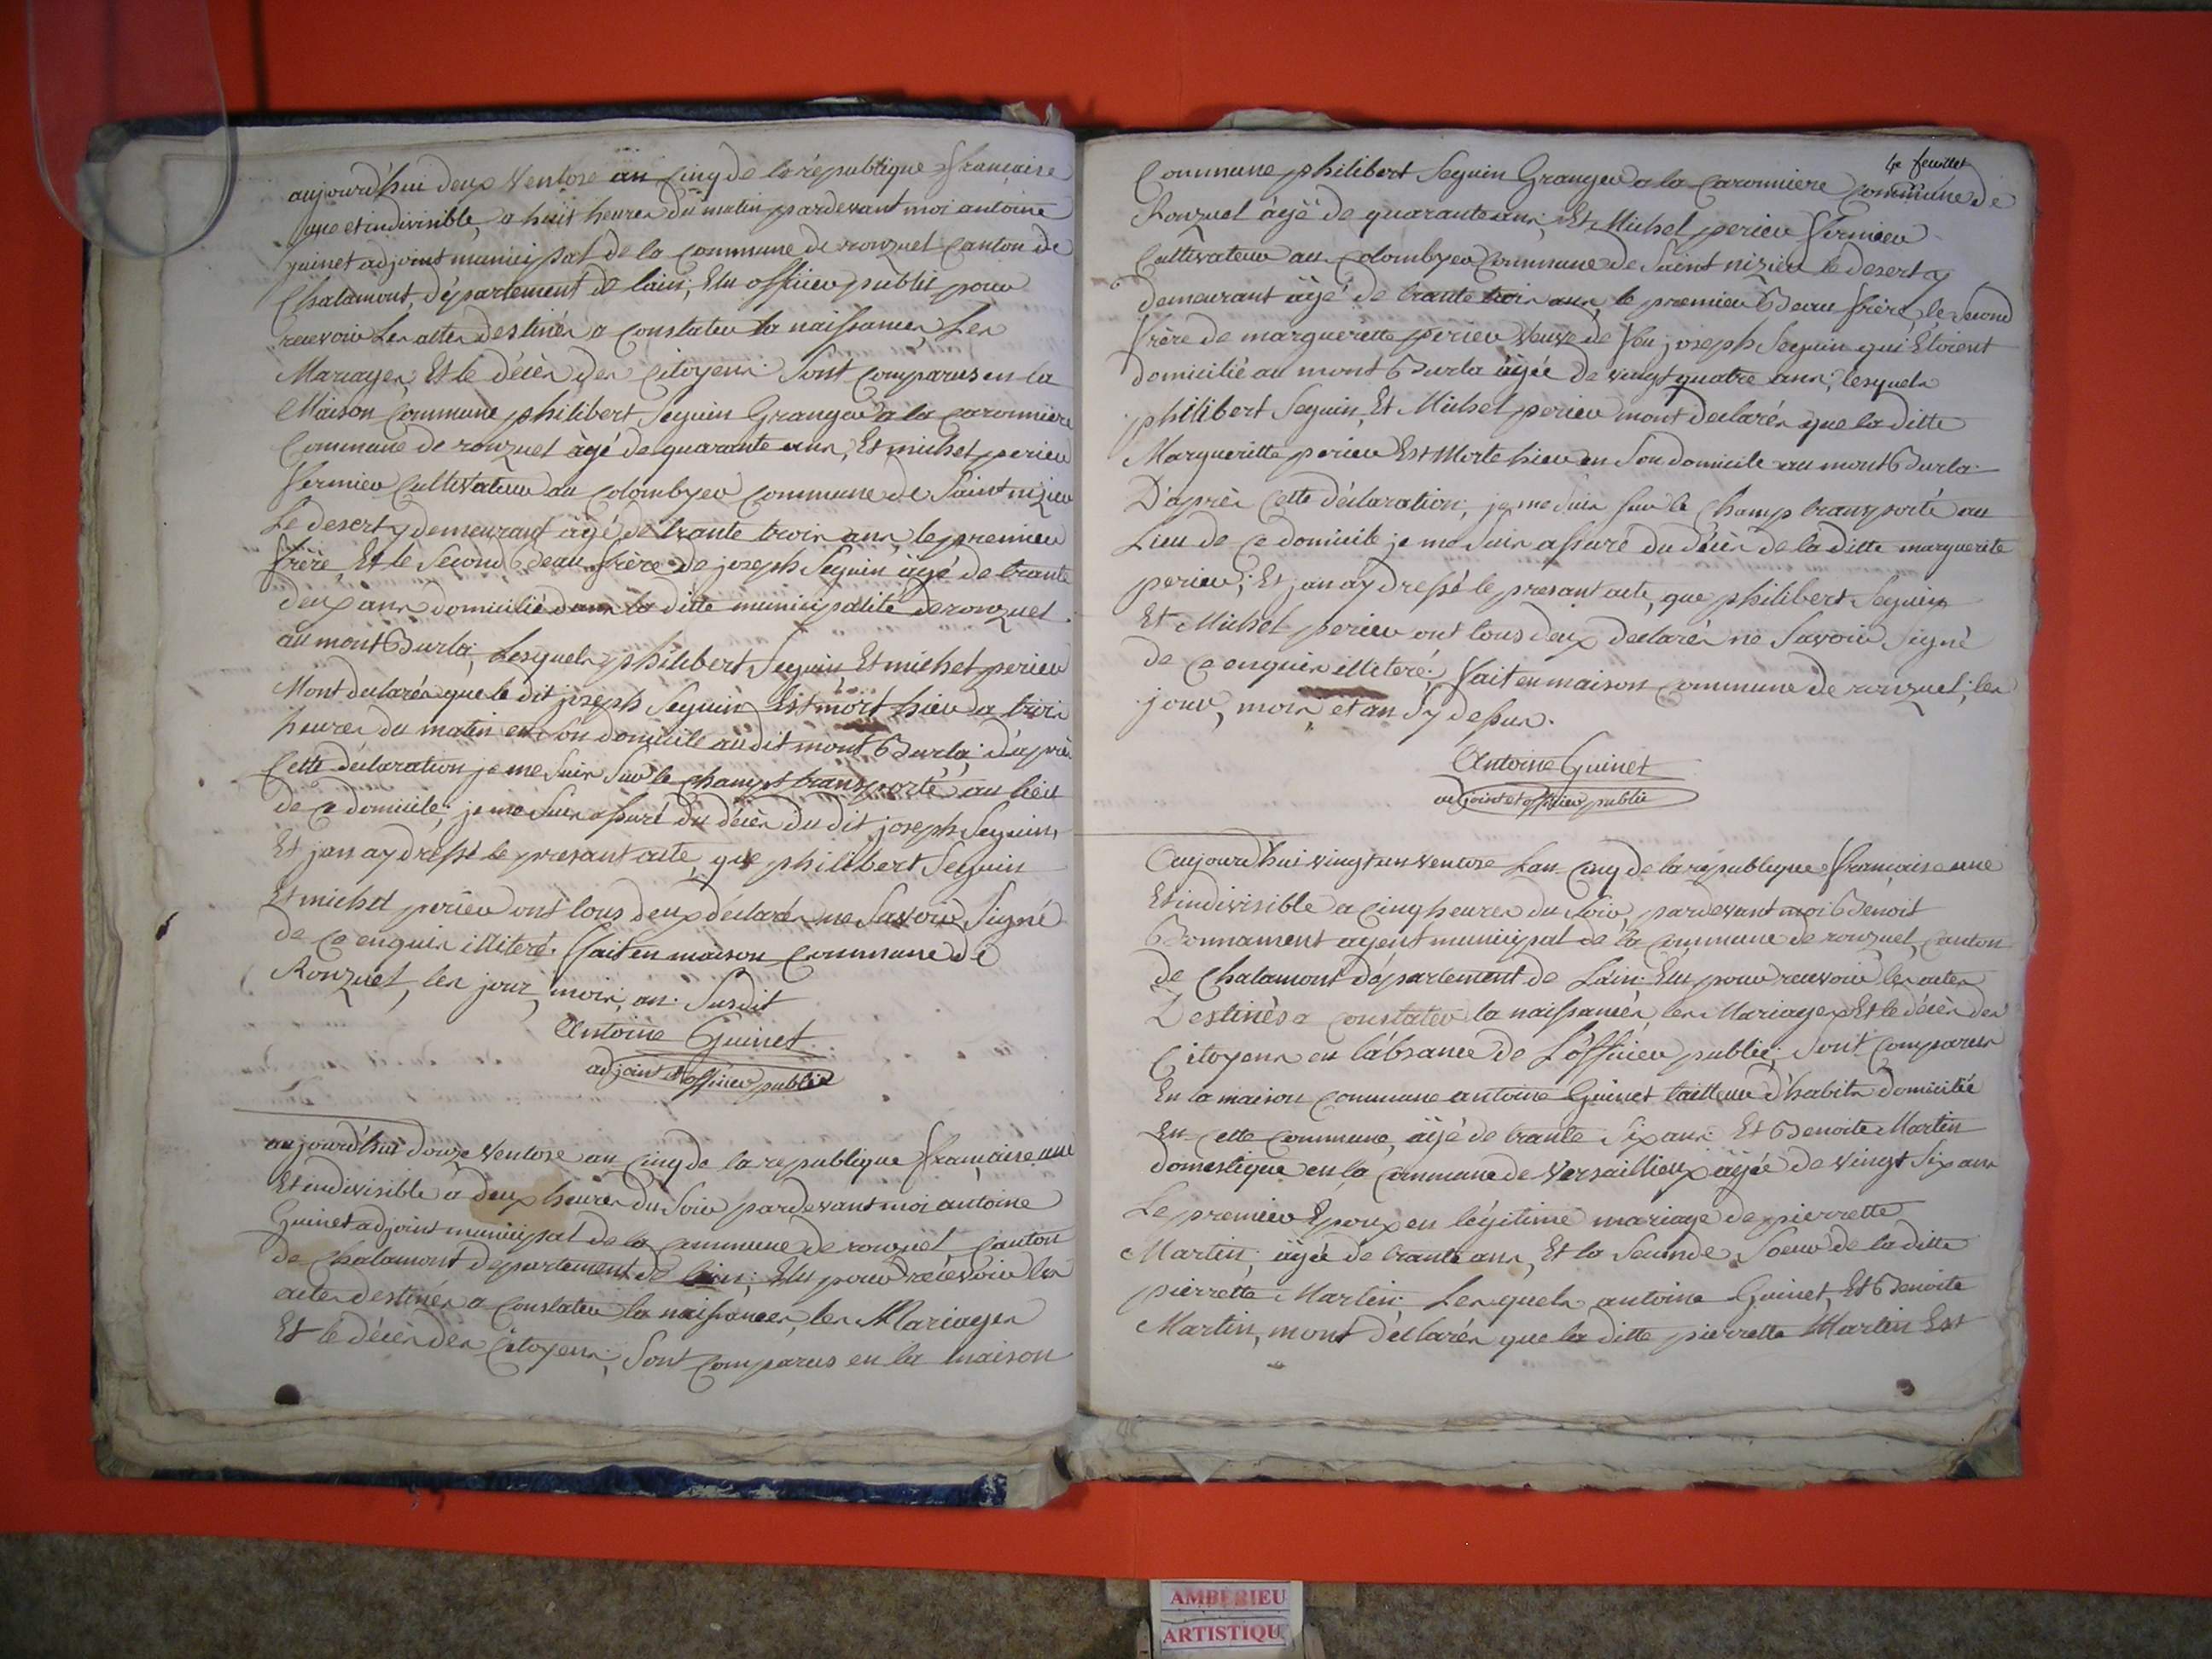 aujourd'hui deux Ventose an Cinq de la république française
une et indivisible, a huit heures du matin pardevant moi antoine
guinet adjoint municipal de la Commune de ronzuel Canton de
Chalamont, département de lain; Elu officier public pour
recevoir Les actes destinés a constater la naissances Les
Mariages Et le décès des Citoyens. Sont Comparus en la
Maison Commune philibert Seguin Granger a la caronniere
Commune de ronzuel âgé de quarante ans, Et michel perier
fermier Cultivateur au colombyer Commune de Saint nizier
Le desert y demeurant âgé de trante trois ans le premier
frère Et le Second Beau frère de joseph Seguin âgé de trante
deux ans domicilié dans la ditte municipalité de ronzuel
au mont Burla, Lesquels philibert Seguin Et michel perier
Mont declarés que le dit joseph Seguin Est mort hier a trois
heures du matin en Son domicile audit mont Burla; d'après
Cette déclaration je me Suis Sur le champt transporté au lieu
de Ce domicile; je me Suis assuré du décès du dit joseph Seguin,
Et jan ay dressé le presant acte, que philibert Seguin
Et michel perier ont tous deux déclarés ne Savoir Signé
de Ce enquis illiteré. fait en maison Commune de
Ronzuel, les jour, mois, an. Susdit
Antoine Guinet
adjoint et officier public
aujourd'hui douze Ventose an Cinq de la republique française une
Et indivisible a deux heures du Soir pardevant moi antoine
Guinet adjoint municipal de la Commune de ronzuel Canton
de Chalamont departement de lain; Elu pour recevoir les
actes destinés a constater la naissances, les Mariages
Et le décès des Citoyens, Sont Comparus en la maison
4e feuillet
Commune philibert Seguin Granger a la Caronniere Commune de
Ronzuel âgé de quarante ans, Et Michel perier fermier
Cultivateur au Colombyer Commune de Saint nizier le desert y
demeurant âgé de trante trois ans, le premier Beau frère, le Second
frère de marguerette perier Veuve de feu joseph Seguin qui Étoient
domicilié au mont Burla âgée de vingt quatre ans; lesquels
philibert Seguin Et Michel perier mont declarés que la ditte
Margueritte perier Est Morte hier en Son domicile au mont Burla.
D'après Cette déclaration, je me Suis Sur le Champ transporté au
Lieu de Ce domicile je me Suis assuré du décès de la ditte marguerite
perier; Et jan ay dressé le presant acte, que philibert Seguin
Et Michel perier ont tous deux declarés ne Savoir Signé
de Ce enquis illiteré, fait en maison Commune de ronzuel; les
jour, mois et an Sy dessus.
Antoine Guinet
adjoint et officier public
Aujourd'hui vingt un Ventose Lan Cinq de la republique française une
Et indivisible a Cinq heures du Soir, pardevant moi Benoit
Bonnament agent municipal de la Commune de ronzuel, Canton
de Chalamont département de Lain. Elu pour recevoir les actes
Destinés a Constater la naissances, les Mariages Et le décès des
Citoyens en l'absance de L'officier public; Sont Comparus
En la maison Commune antoine Guinet tailleur d'habits domicilié
En Cette Commune, âgé de trante Six ans Et Benoite Martin
domestique en la Commune de Versaillieux âgée de Vingt Six ans
Le premier Epoux en légitime mariage de pierrette
Martin, âgée de trante ans, Et la Seconde Soeur de la ditte
pierrette Martin. Lesquels antoine Guinet, Et Benoite
Martin, mont déclarés que la ditte pierrette Martin Est
AMBERIEU
ARTISTIQU